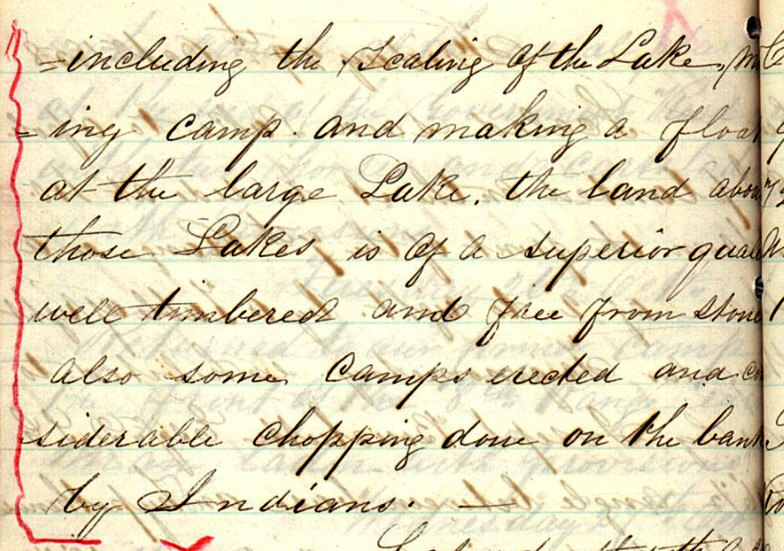 =including the scaling of the Lake, m
=ing camp. and making a float
at the large Lake. the land abou
those Lakes is of a superior qual
well timbered and free from stone
also some camps erected and co
siderable chopping done on the bank
by Indians. —